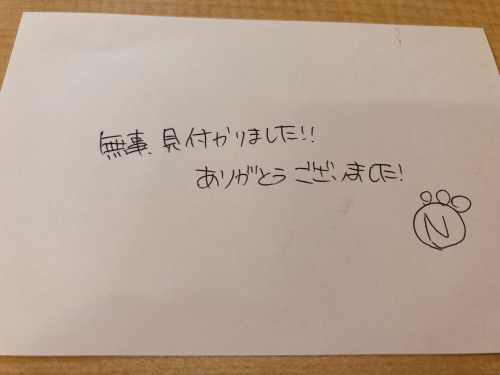 無事、見付かりました!!
ありがとうございました!
N